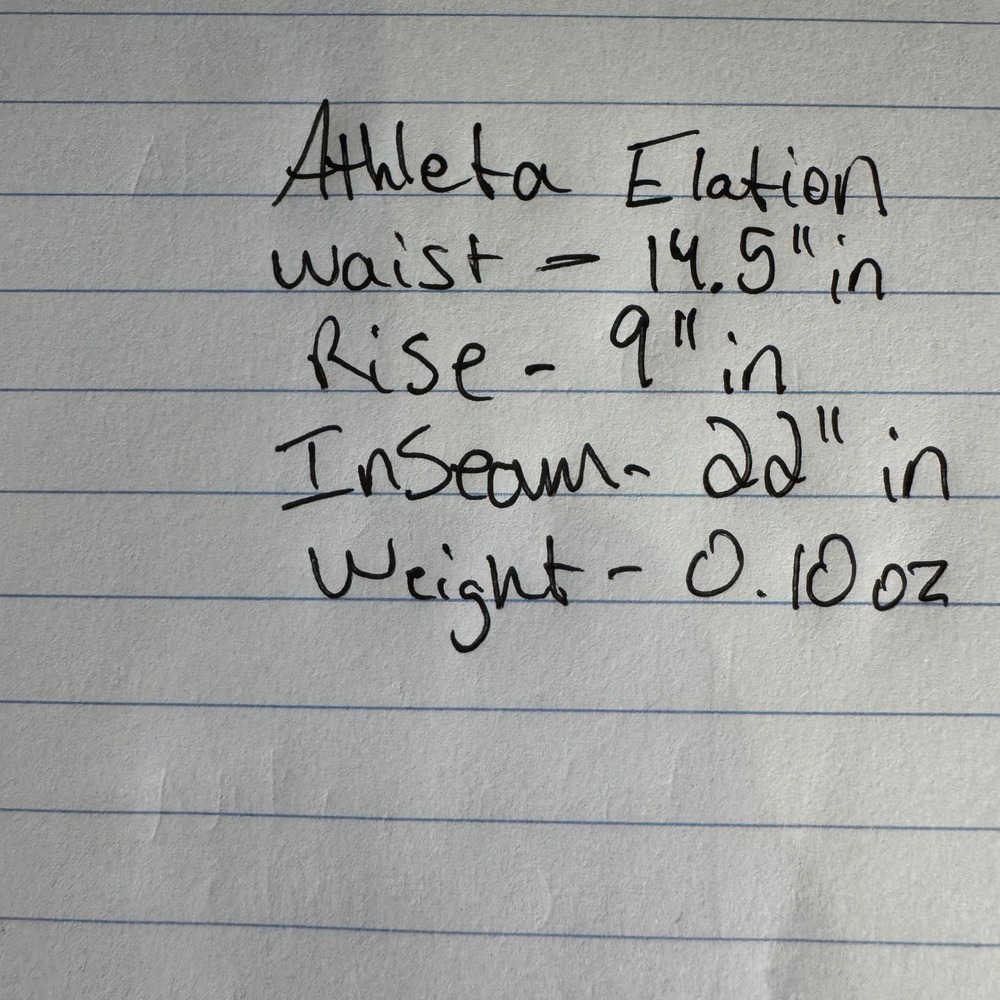 Athleta Elation
Waist - 14.5" in
Rise - 9" in
InSeam - 22" in
Weight - 0.10 oz